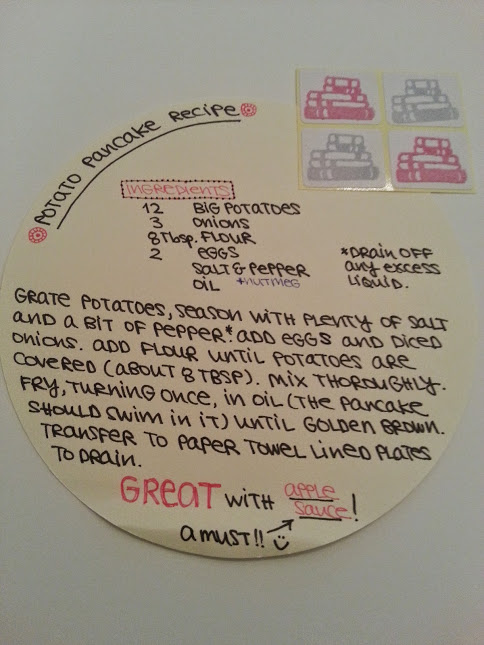 Potato Pancake Recipe
Ingredients
12 Big Potatoes
3 Onions
8 Tbsp. Flour
2 Eggs
Salt & Pepper
Oil *Nutmeg
*Drain off
any excess
liquid.
Grate potatoes, season with plenty of salt
and a bit of pepper.* Add eggs and diced
onions. Add flour until potatoes are
covered (about 8 Tbsp). Mix thoroughly.
Fry, turning once, in oil (the pancake
should swim in it) until golden brown.
Transfer to paper towel lined plates
to drain.
Great with apple
sauce!
a must!!